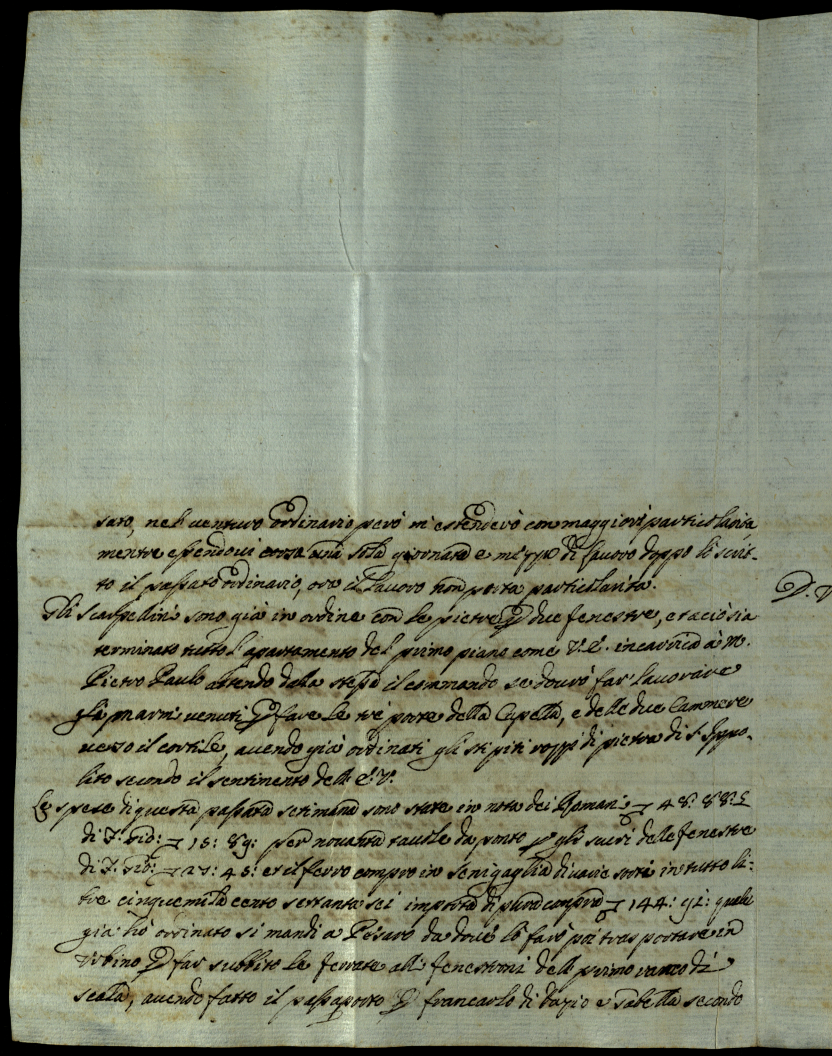 sato, nel venturo ordinario però m'estenderò con maggiori particolarità
mentre essendovi corsa una sola giornata e mezzo di lavoro doppo lo scrit-
to il passato ordinario, ora il lavoro non porta particolarità.
Gli scarpellini sono già in ordine con le pietre p due fenestre, et acciò sia
terminato tutto l'apartamento del primo piano come V.E. incaricò à m.
Pietro Paulo attendo dalla stessa il commando se dovrò far lavorare
gli marmi venuti p fare le trè porte della Capella, e delle due Cammere
verso il cortile, avendo già ordinati gli stipiti rozzi di pietra di S. Ippo-
lito secondo il sentimento dell' E.V.
Le spese di questa passata settimana sono state in nota dei Romani 48: 88: 5
di F. Gio: 15: 89: per novanta tavole da ponte p gli scuri delle fenestre
di F. Gio: 27: 45: et il ferro compro in Senigaglia di varie sorti in tutto li-
bre cinquemila cento settanta sei importa di pura compra 144: 91: quale
già hò ordinato si mandi a Pesaro da dove lo farò poi trasportare in
Urbino p far subbito le ferrate alli fenestroni dell primo ramo di
scala, avendo fatto il passaporto p francarlo di dazio e gabella secondo
D. V